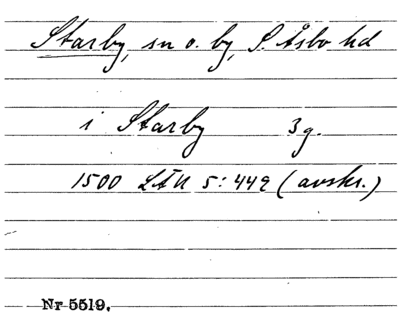 Starby, sn o. by, S. Åsbo hd
i Starby 3 g.
1500 LÄU 5:449 (avskr.)
Nr 5519.